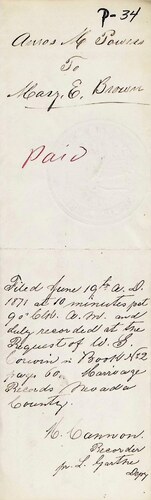 P-34
Amos M Powers
To
Mary, E. Brown
Paid
Filed June 19th A. D.
1871 at 10 minutes past
9 o'Clk. A. M. and
duly recorded at the
Request of W. S.
in Book No 2
page 60, Marriage
Records Nevada
County.
K. Cannon.
Recorder
pr. L. Garthe
Depy